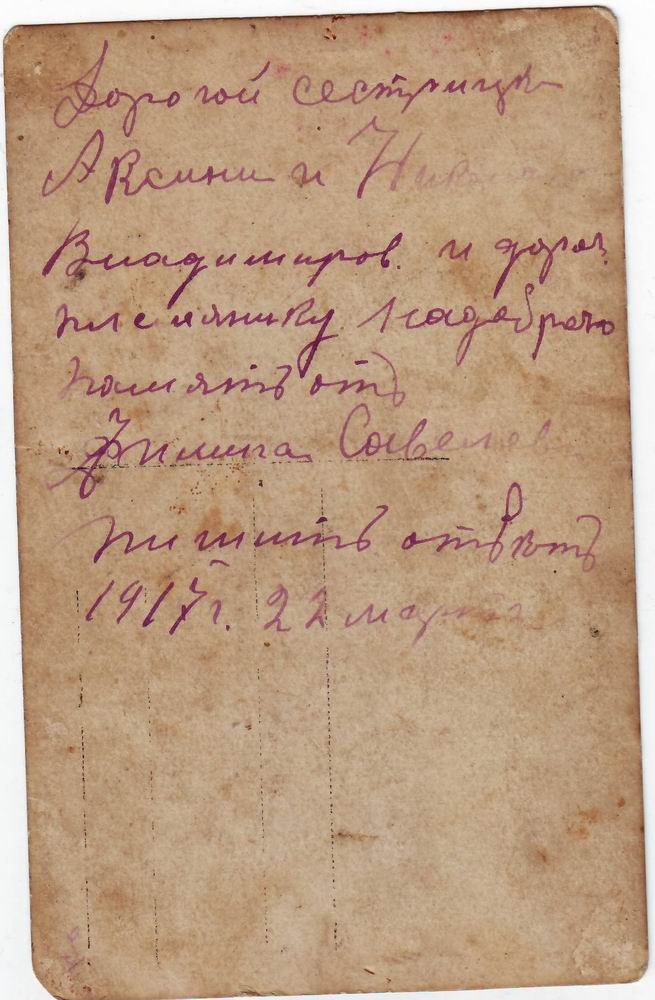 Дорогой сестрицы
Аксини и
Владимиров. и дорог.
племянику надобрею
память отъ
Филипа Савелев
пишитъ отвѣтъ
1917 г. 22 марта